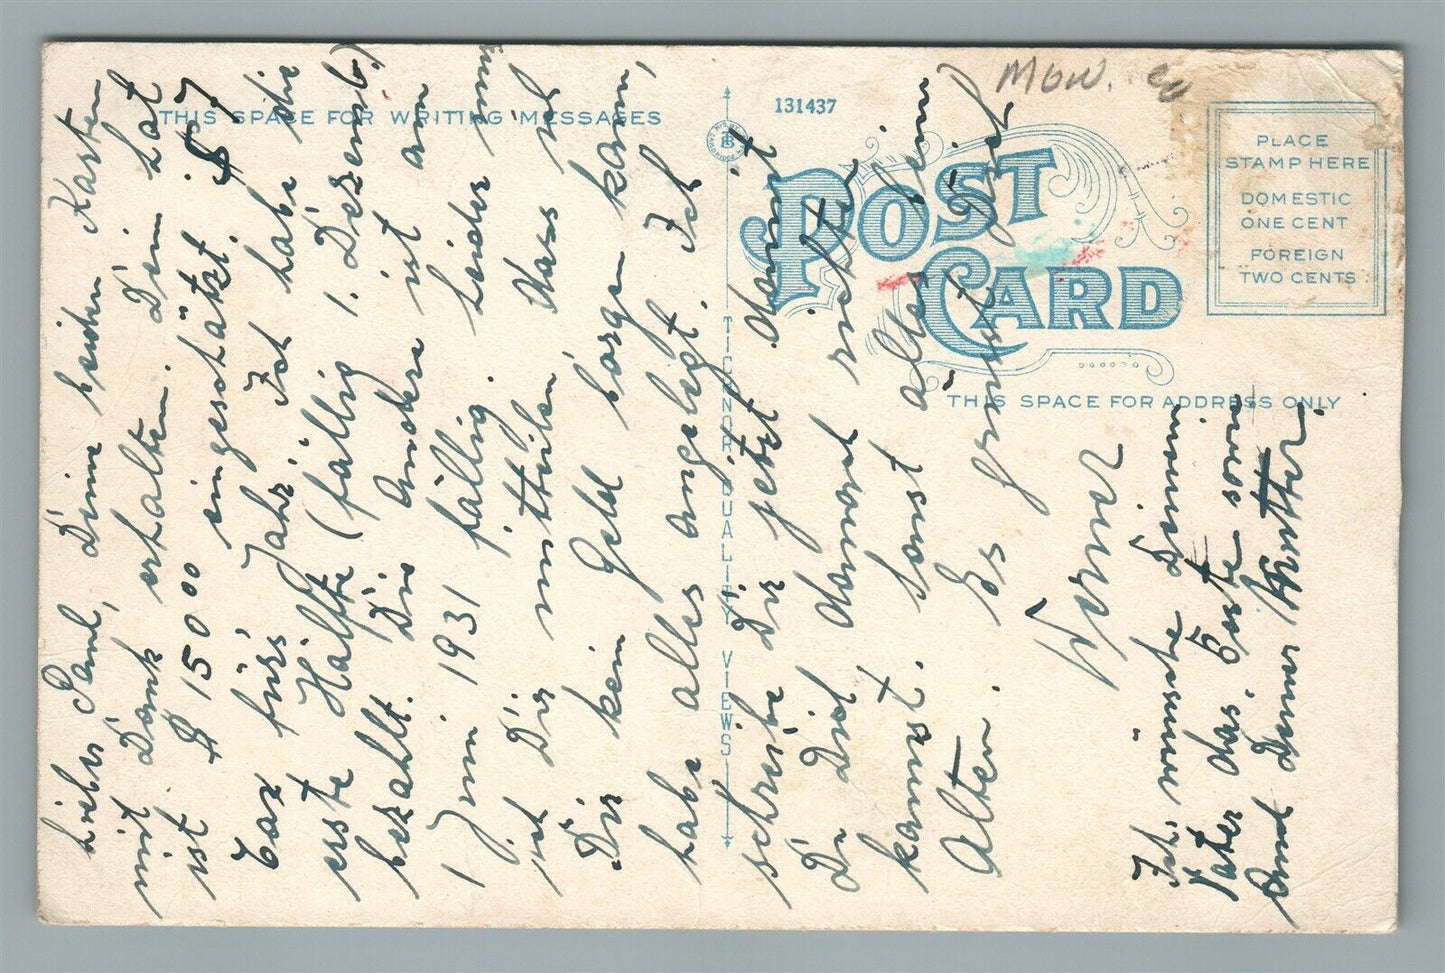 THIS SPACE FOR WRITING MESSAGES
131437
POST CARD
PLACE
STAMP HERE
DOMESTIC
ONE CENT
FOREIGN
TWO CENTS
THIS SPACE FOR ADDRESS ONLY
TICHNOR QUALITY VIEWS
Lieber Paul, Deine beiden Karten
mit Dank erhalten. Dein Lot
ist $ 1500 eingeschätzt. $ 57
Tax fürs Jahr. Ich habe die
erste Hälfte (fällig 1. Dezemb.)
bezahlt. Die Andere ist am
1 Juni 1931 fällig. Leider muss
ich Dir mitteilen dass ich
Dir kein Geld borgen kann,
habe alles angelegt. Ich
schreibe Dir jetzt damit
Du Dich darnach richten
kannst. Sonst alles beim
Alten. Es grüsst Dich
Werner
Ich wünsche Deinem
Vater das Beste sowie
und Deiner Mutter.